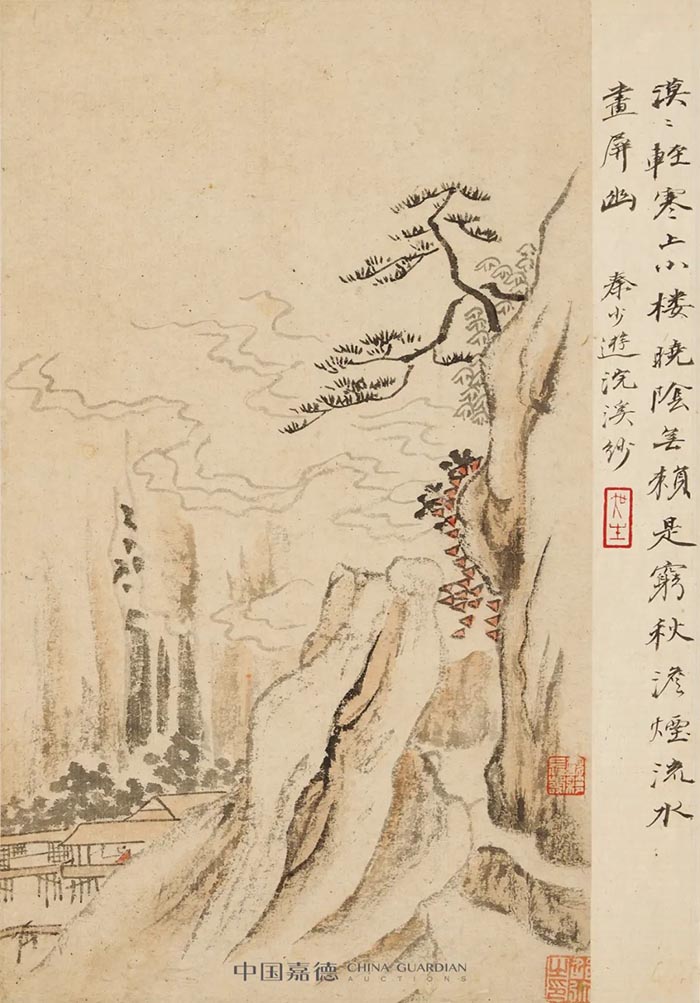 漠〻輕寒上小楼曉陰無賴是窮秋澹煙流水
畫屏幽
秦少遊浣溪紗
中国嘉德 CHINA GUARDIAN
AUCTIONS